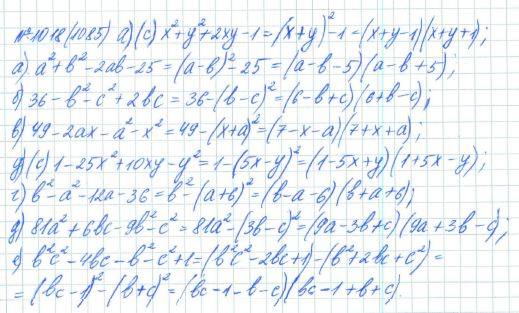 № 1018 (1085) а) (с) x²+y²+2xy-1=(x+y)²-1=(x+y-1)(x+y+1);
а) a²+b²-2ab-25=(a-b)²-25=(a-b-5)(a-b+5);
б) 36-b²-c²+2bc=36-(b-c)²=(6-b+c)(6+b-c);
в) 49-2ax-a²-x²=49-(x+a)²=(7-x-a)(7+x+a);
д) (с) 1-25x²+10xy-y²=1-(5x-y)²=(1-5x+y)(1+5x-y);
г) b²-a²-12a-36=b²-(a+6)²=(b-a-6)(b+a+6);
д) 81a²+6bc-9b²-c²=81a²-(3b-c)²=(9a-3b+c)(9a+3b-c);
е) b²c²-4bc-b²-c²+1=(b²c²-2bc+1)-(b²+2bc+c²)=
=(bc-1)²-(b+c)²=(bc-1-b-c)(bc-1+b+c).